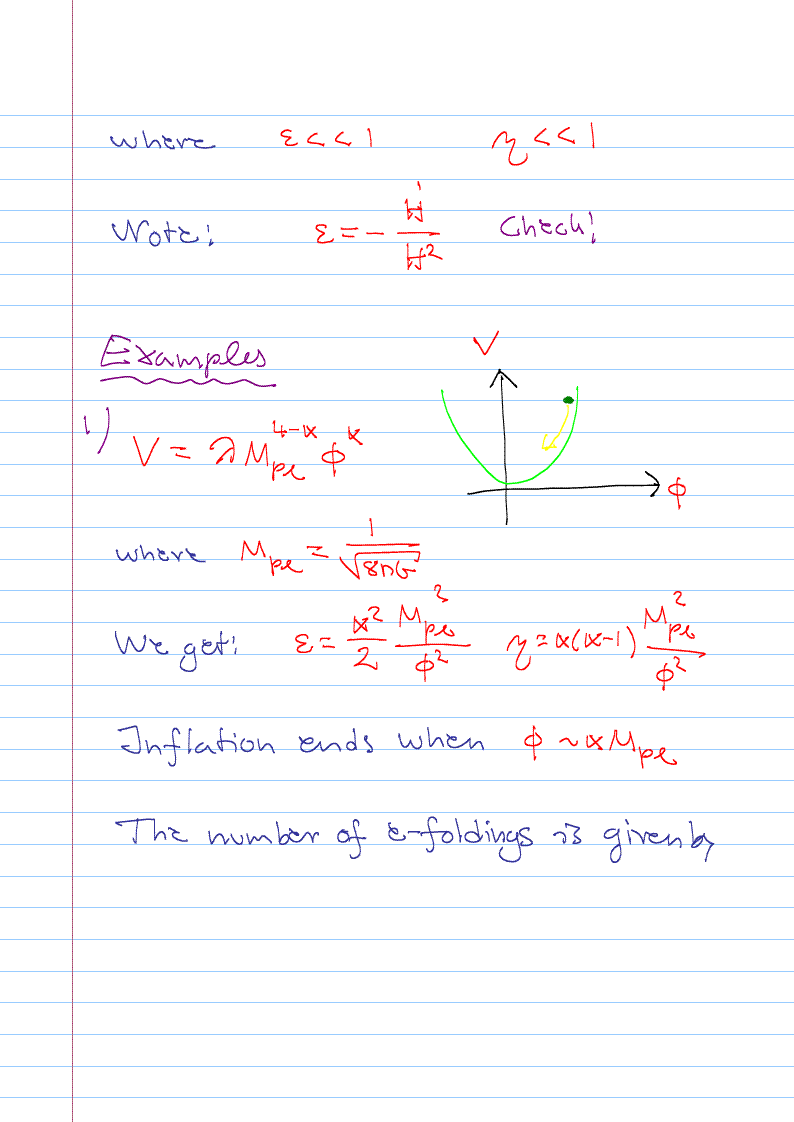 where ε<<1 η<<1
Note: ε = - Ḣ / H² Check!
Examples
V
1) V = λ M_pl^{4-α} φ^α
φ
where M_pl = 1 / √(8πG)
We get: ε = α²/2 M_pl²/φ² η = α(α-1) M_pl²/φ²
Inflation ends when φ ~ α M_pl
The number of e-foldings is given by